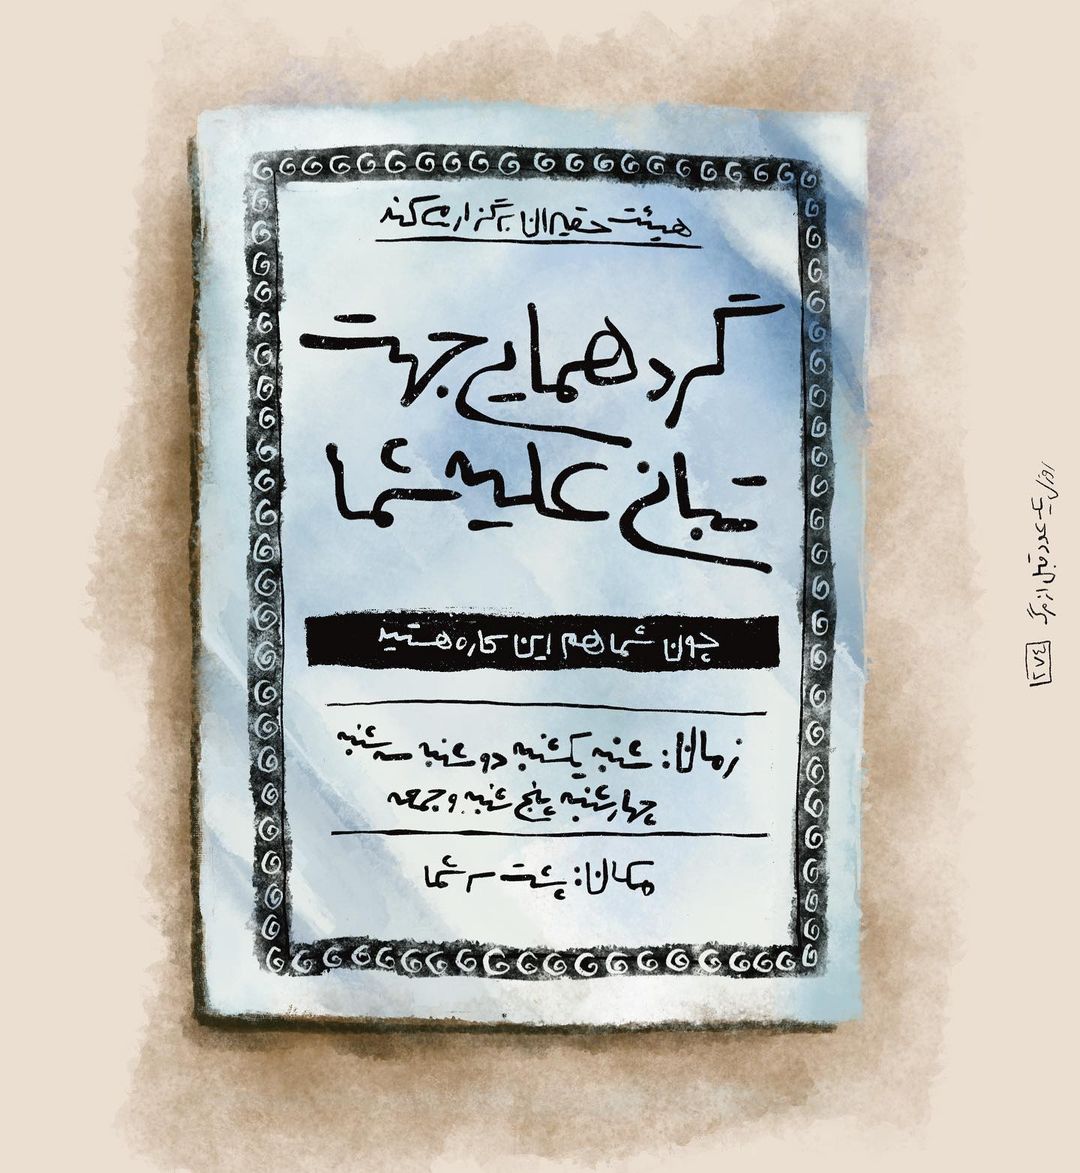 هیئت حقیران برگزار می کند
گردهمایی جهت
تبانی علیه شما
چون شما هم این کاره هستید
زمان: شنبه یکشنبه دوشنبه سه شنبه
چهارشنبه پنج شنبه و جمعه
مکان: پشت سر شما
قبل از مرگ
۲۸۴